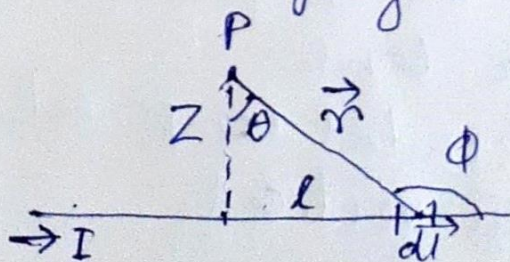 P
Z θ r⃗ Φ
l
→ I dl